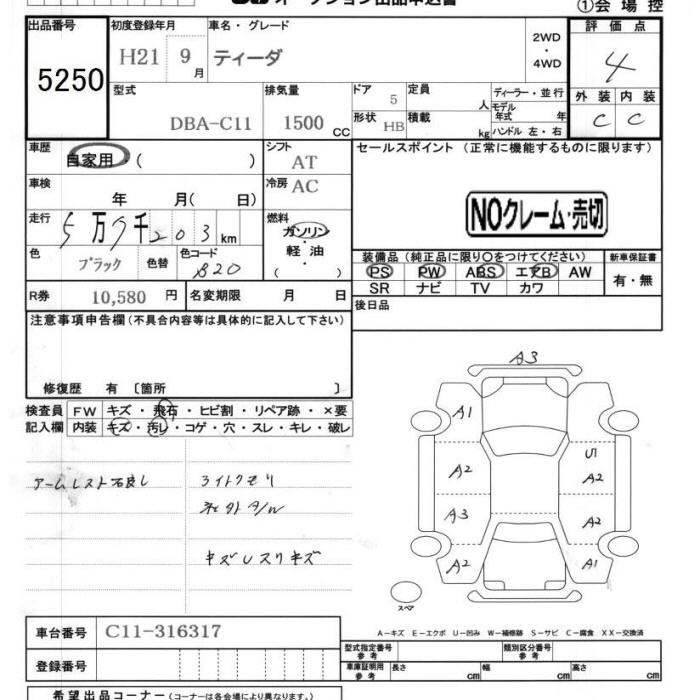 ①会場控
出品番号 5250
初度登録年月 H21 9月
車名・グレード ティーダ
2WD・4WD
評価点 4
外装 C 内装 C
型式 DBA-C11
排気量 1500 CC
ドア 5
形状 HB
定員 人
積載 kg
ディーラー・並行
モデル年式 年
ハンドル 左・右
車歴 自家用・( )
シフト AT
セールスポイント (正常に機能するものに限ります)
車検 年 月( 日)
冷房 AC
NOクレーム・売切
走行 5万7千203km
燃料 ガソリン・軽油・( )
色 ブラック 色替 色コード B20
装備品(純正品に限り○をつけてください) 新車保証書
PS PW ABS エアB AW 有・無
SR ナビ TV カワ
R券 10,580 円 名変期限 月 日
後日品
注意事項申告欄(不具合内容等は具体的に記入して下さい)
修復歴 有 〔箇所 〕
検査員記入欄
FW キズ・飛石・ヒビ割・リペア跡・×要
内装 キズ・汚レ・コゲ・穴・スレ・キレ・破レ
アームレスト不良し ライトクモリ
社外A/W
キズ U スリキズ
A3
A1
U1
A2 A2
A3 A2
A2 A1
スペア
A-キズ E-エクボ U-凹み W-補修跡 S-サビ C-腐食 XX-交換済
車台番号 C11-316317
型式指定番号 参考 類別区分番号 参考
登録番号
車庫証明用 参考 長さ cm 幅 cm 高さ cm
希望出品コーナー(コーナーは各会場により異なります。)